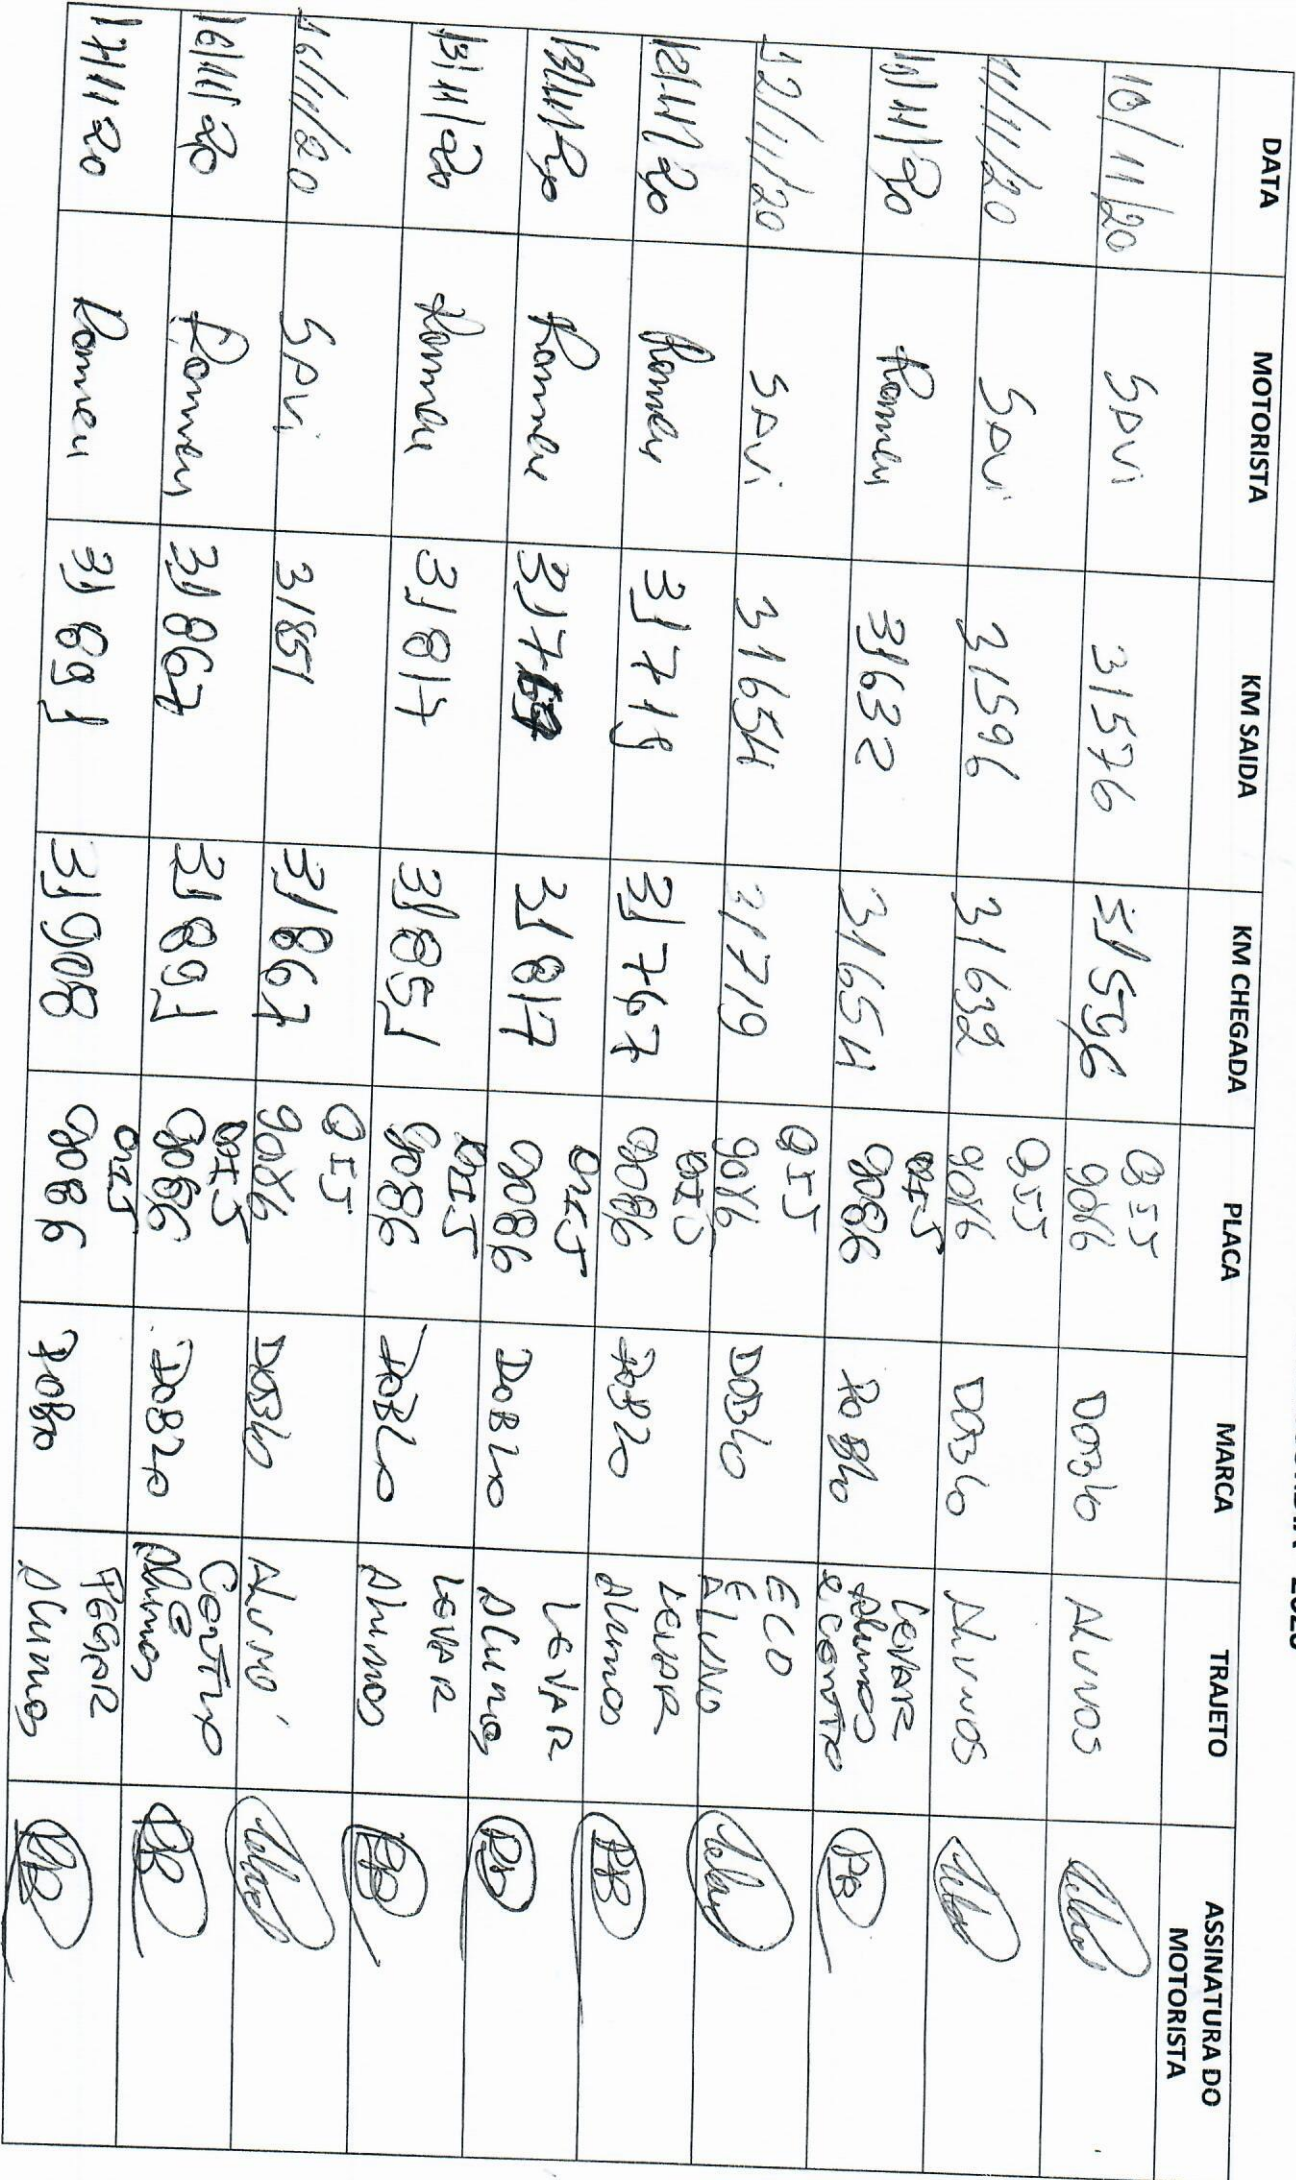 2020
DATA MOTORISTA KM SAIDA KM CHEGADA PLACA MARCA TRAJETO ASSINATURA DO MOTORISTA
10/11/20 SAVI 31576 31596 QIJ 9086 DOBLO ALUNOS
11/11/20 SAVI 31596 31632 QIJ 9086 DOBLO ALUNOS
11/11/20 Romeu 31632 31654 QIJ 9086 DOBLO LEVAR Alunos e centro
12/11/20 SAVI 31654 31719 QIJ 9086 DOBLO ECO E ALUNO
12/11/20 Romeu 31719 31767 QIJ 9086 DOBLO LEVAR Alunos
13/11/20 Romeu 31767 31817 QIJ 9086 DOBLO LEVAR Alunos
13/11/20 Romeu 31817 31851 QIJ 9086 DOBLO LEVAR Alunos
16/11/20 SAVI 31851 31867 QIJ 9086 DOBLO ALUNO
16/11/20 Romeu 31867 31891 QIJ 9086 DOBLO Centro e Alunos
17/11/20 Romeu 31891 31908 QIJ 9086 DOBLO PEGAR Alunos